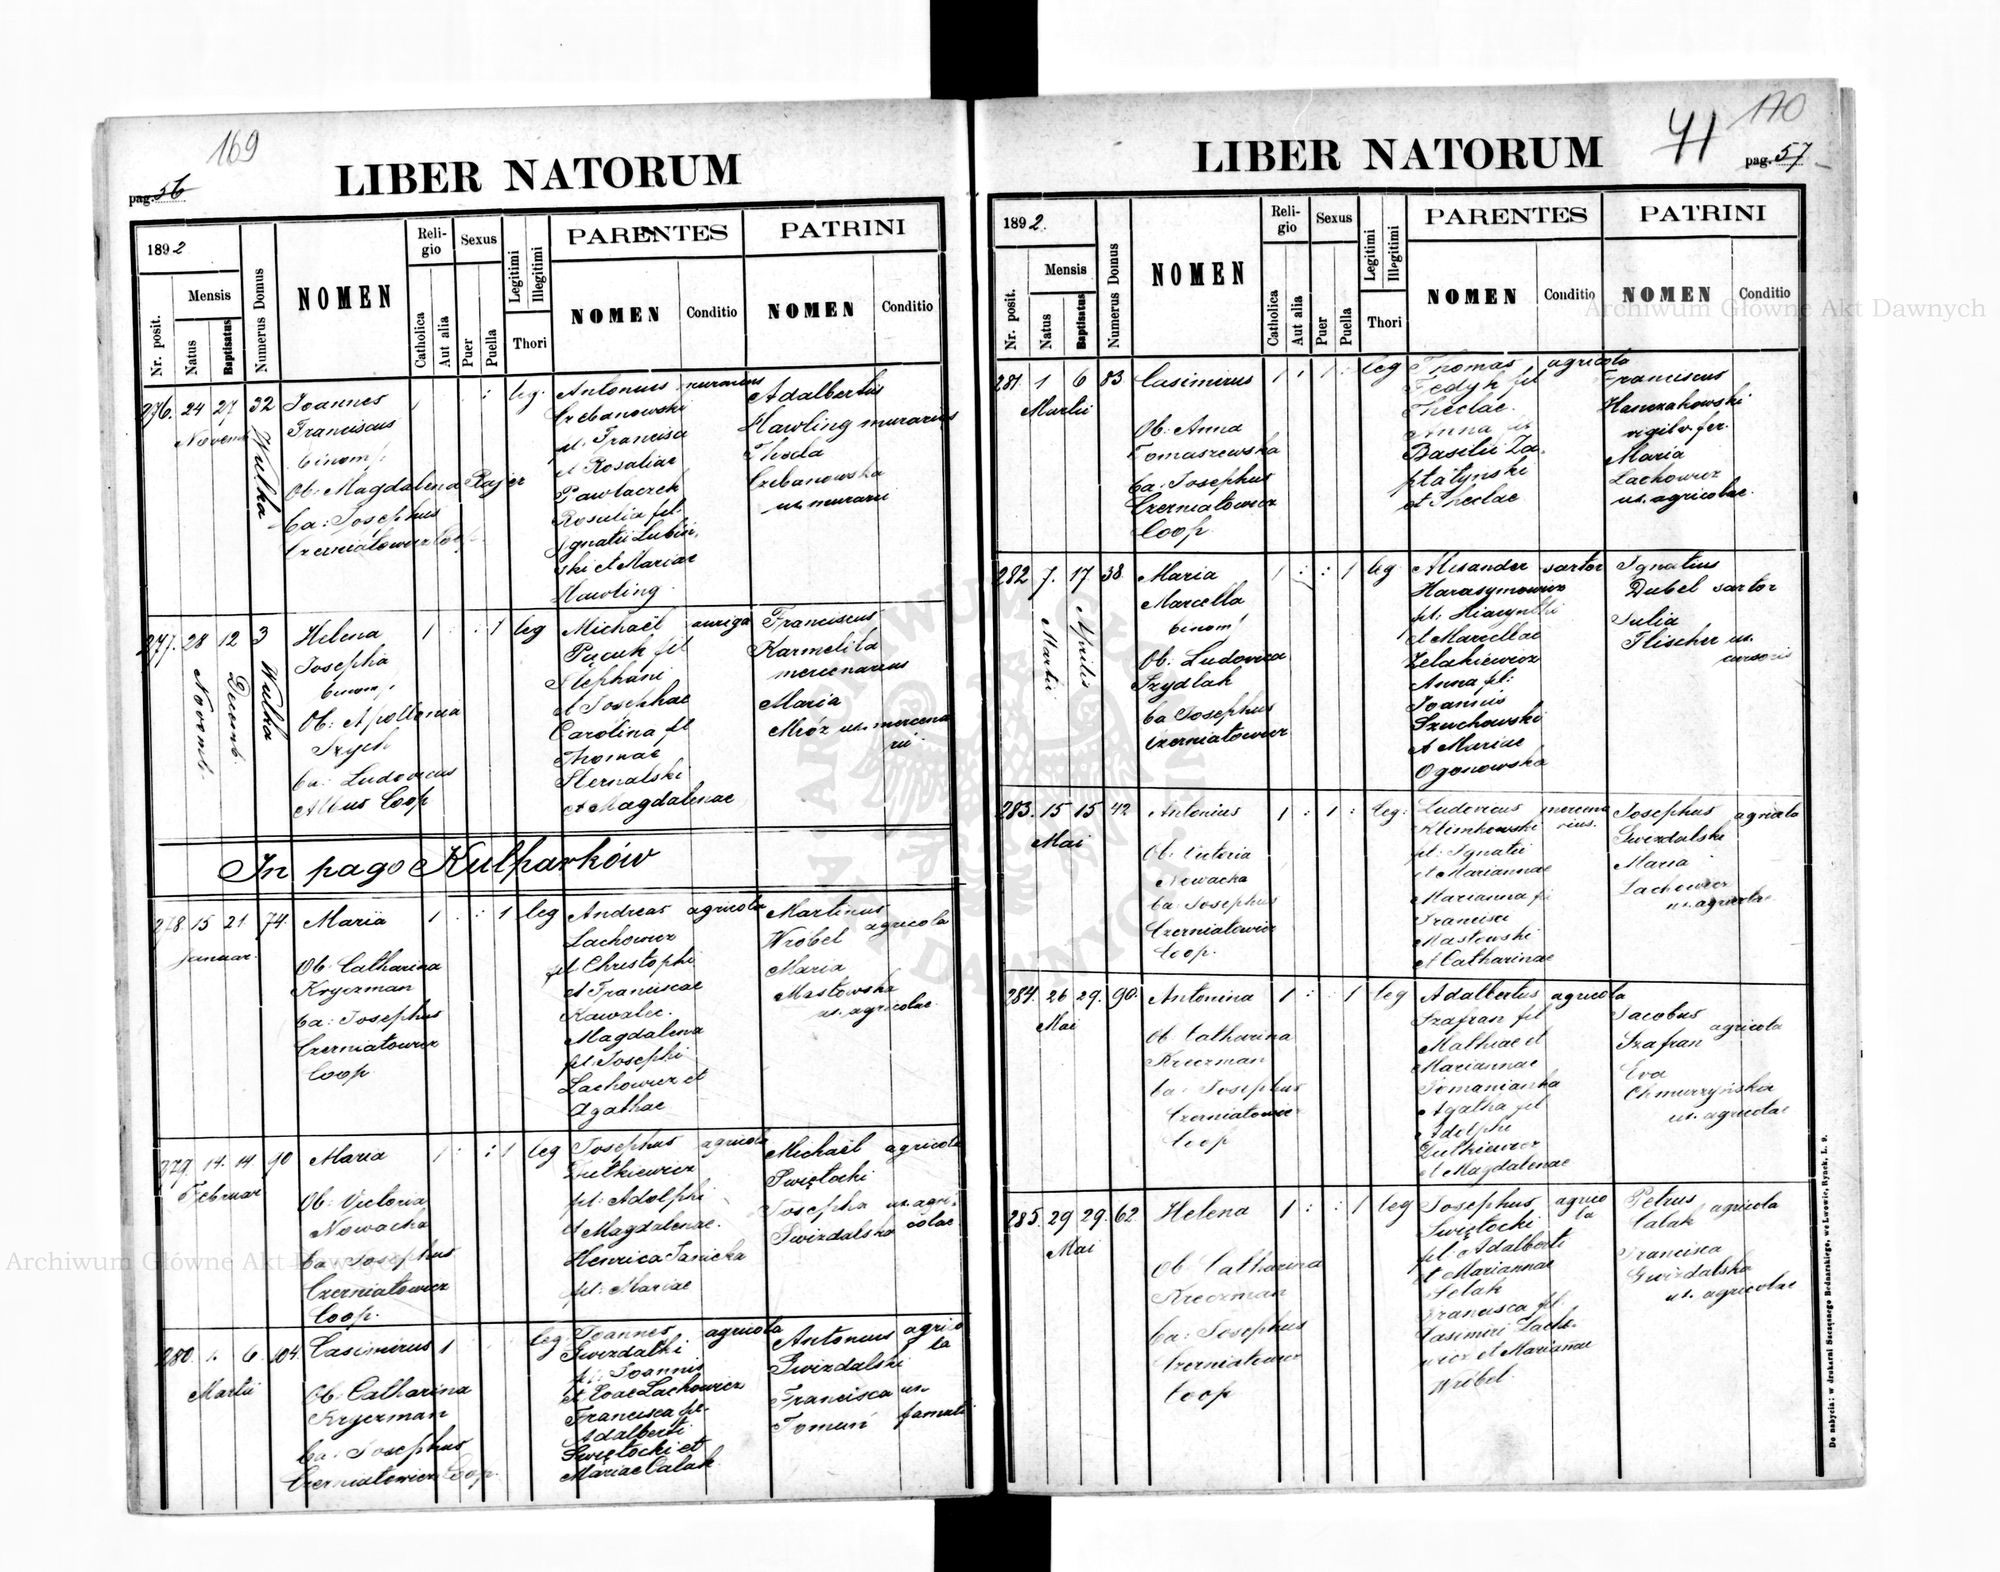 169
pag. 56
LIBER NATORUM
1892
Nr. posit.
Mensis
Natus
Baptisatus
Numerus Domus
NOMEN
Religio
Catholica
Aut alia
Sexus
Puer
Puella
Legitimi
Illegitimi
Thori
PARENTES
NOMEN
Conditio
PATRINI
NOMEN
Conditio
276. 24 27 32
Novemb
Wulka
Joannes
Franciscus
binom.
Ob: Magdalena Rajer
ba: Josephus
Czerniatowicz Coop
leg.
Antonius murarius
Czebanowski
fil. Francisci
et Rosaliae
Pawlaczek
Rosalia fil.
Ignatii Lubin
ski et Mariae
Hawling
Adalbertus
Hawling murarius
Czebanowska
ux. murarii
277. 28 12 3
Novemb.
Decemb.
Wulka
Helena
Josepha
binom.
Ob: Apollonia
ba: Ludovicus
Albus Coop
1 : : 1 leg
Michaël auriga
Pączuk fil
Stephani
et Josephae
Carolina fil
Thomae
Sternalski
et Magdalenae
Franciscus
Karmelita
mercenarius
Maria
Mróz ux. mercena
rii.
In pago Kulparków
278. 15 21. 74.
Januar.
Maria
Ob: Catharina
Kryczman
ba: Josephus
Czerniatowicz
Coop
1 : : 1 leg
Andreas agricola
Lachowicz
fil Christophi
et Franciscae
Kawalec.
Magdalena
fil. Josephi
Lachowicz et
Agathae
Martinus
Wróbel agricola
Maria
Masłowska
ux. agricolae
279 14. 14. 90
Februar
Maria
Ob: Victoria
Nowacka
ba: Josephus
Czerniatowicz
Coop.
1 : : 1 leg
Josephus agricola
Dutkiewicz
fil: Adolphi
et Magdalenae.
Henrica Janicka
fil: Mariae
Michaël agricola
Święłocki
Josepha ux. agri-
Gwizdalska colae
280. 1. 6. 104.
Martii
Casimirus 1
Ob: Catharina
Kryczman
ba: Josephus
Czerniatowicz Coop.
leg.
Joannes agricola
Gwizdalki
fil: Joannis
et Evae Lachowicz
Francisca fil.
Adalberti
Święłocki et
Mariae Calak
Antonius agrico
Gwizdalski la
Francisca ux.
Tomuń famuli
170
71
LIBER NATORUM
pag. 57
1892.
Nr. posit.
Mensis
Natus
Baptisatus
Numerus Domus
NOMEN
Religio
Catholica
Aut alia
Sexus
Puer
Puella
Legitimi
Illegitimi
Thori
PARENTES
NOMEN
Conditio
PATRINI
NOMEN
Conditio
281. 1 6 83
Martii
Casimirus
Ob: Anna
Tomaszewska
ba: Josephus
Czerniatowicz
Coop.
leg
Thomas agricola
Fedyk fil
Theclae.
Anna fil
Basilii Za-
płatyński
et Theclae
Franciscus
Hanczakowski
vigil v. fer.
Maria
Lachowicz
ux. agricolae.
282 7. 17. 38
Martii
Aprilis
Maria
Marcella
binom.
Ob: Ludovica
Szydlak
ba Josephus
Czerniatowicz
1 : : 1 leg
Alexander sartor
Harasymowicz
fil: Hiacynthi
et Marcellae
Zelakiewicz
Anna fil:
Joannis
Szuchowski
et Mariae
Ogonowska
Ignatius
Dubel sartor
Julia
Flischer ux.
cursoris
283. 15 15 42
Mai
Antonius
Ob: Victoria
Nowacka
ba: Josephus
Czerniatowicz
Coop.
1 : 1 : leg:
Ludovicus mercena
Klimkowski rius.
fil: Ignatii
et Mariannae
Marianna fi
Francisci
Masłowski
et Catharinae
Josephus agricola
Gwizdalski
Maria
Lachowicz
ux. agricolae
284. 26 29. 90.
Mai
Antonina
Ob Catharina
Kreczman
ba: Josephus
Czerniatowicz
Coop
1 : : 1 leg
Adalbertus agricola
Szafran fil
Mathiae et
Mariannae
Tomanianka
Agatha fil
Adolphi
Dutkiewicz
et Magdalenae
Jacobus agricola
Szafran
Eva
Chmurzyńska
ux. agricolae
285. 29 29. 62.
Mai
Helena
Ob Catharina
Kreczman
ba: Josephus
Czerniatowicz
Coop
1 : : 1 leg
Josephus agrico
Święłocki la
fil Adalberti
et Mariannae
Selak
Francisca fil.
Casimiri Lacho-
wicz et Mariannae
Wróbel.
Petrus agricola
Calak
Francisca
Gwizdalska
ux. agricolae
De nabycia: w drukarni Szczęsnego Bednarskiego, we Lwowie, Rynek, L. 9.
Archiwum Główne Akt Dawnych
Archiwum Główne Akt Dawnych